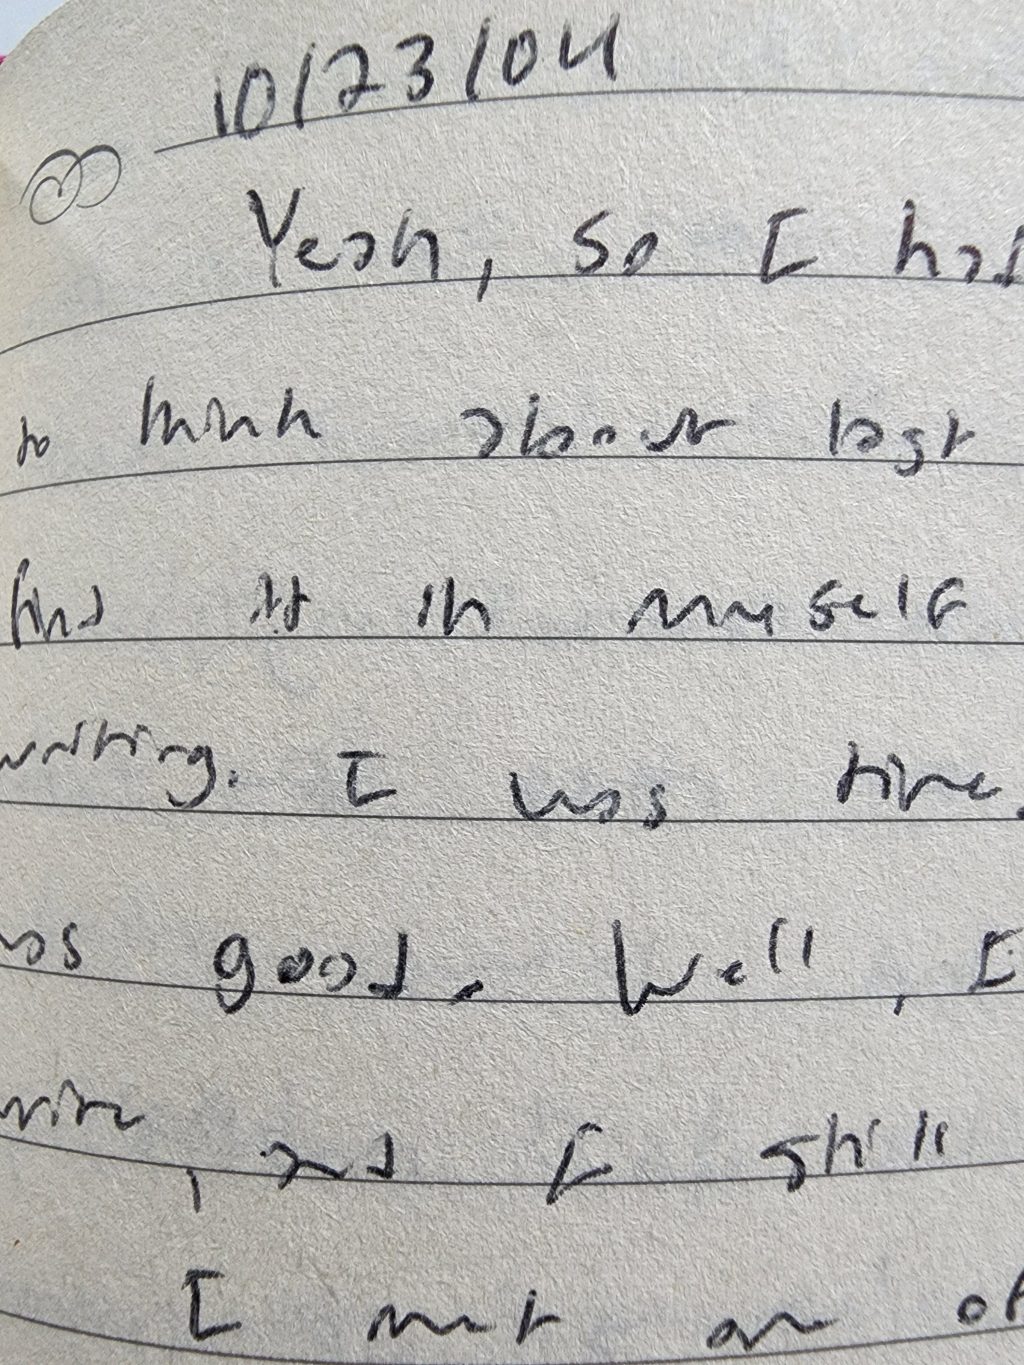 10/23/04
Yeah, so I had
to think about last
find it in myself
writing. I was
was good. Well, I
write, and I still
I met an